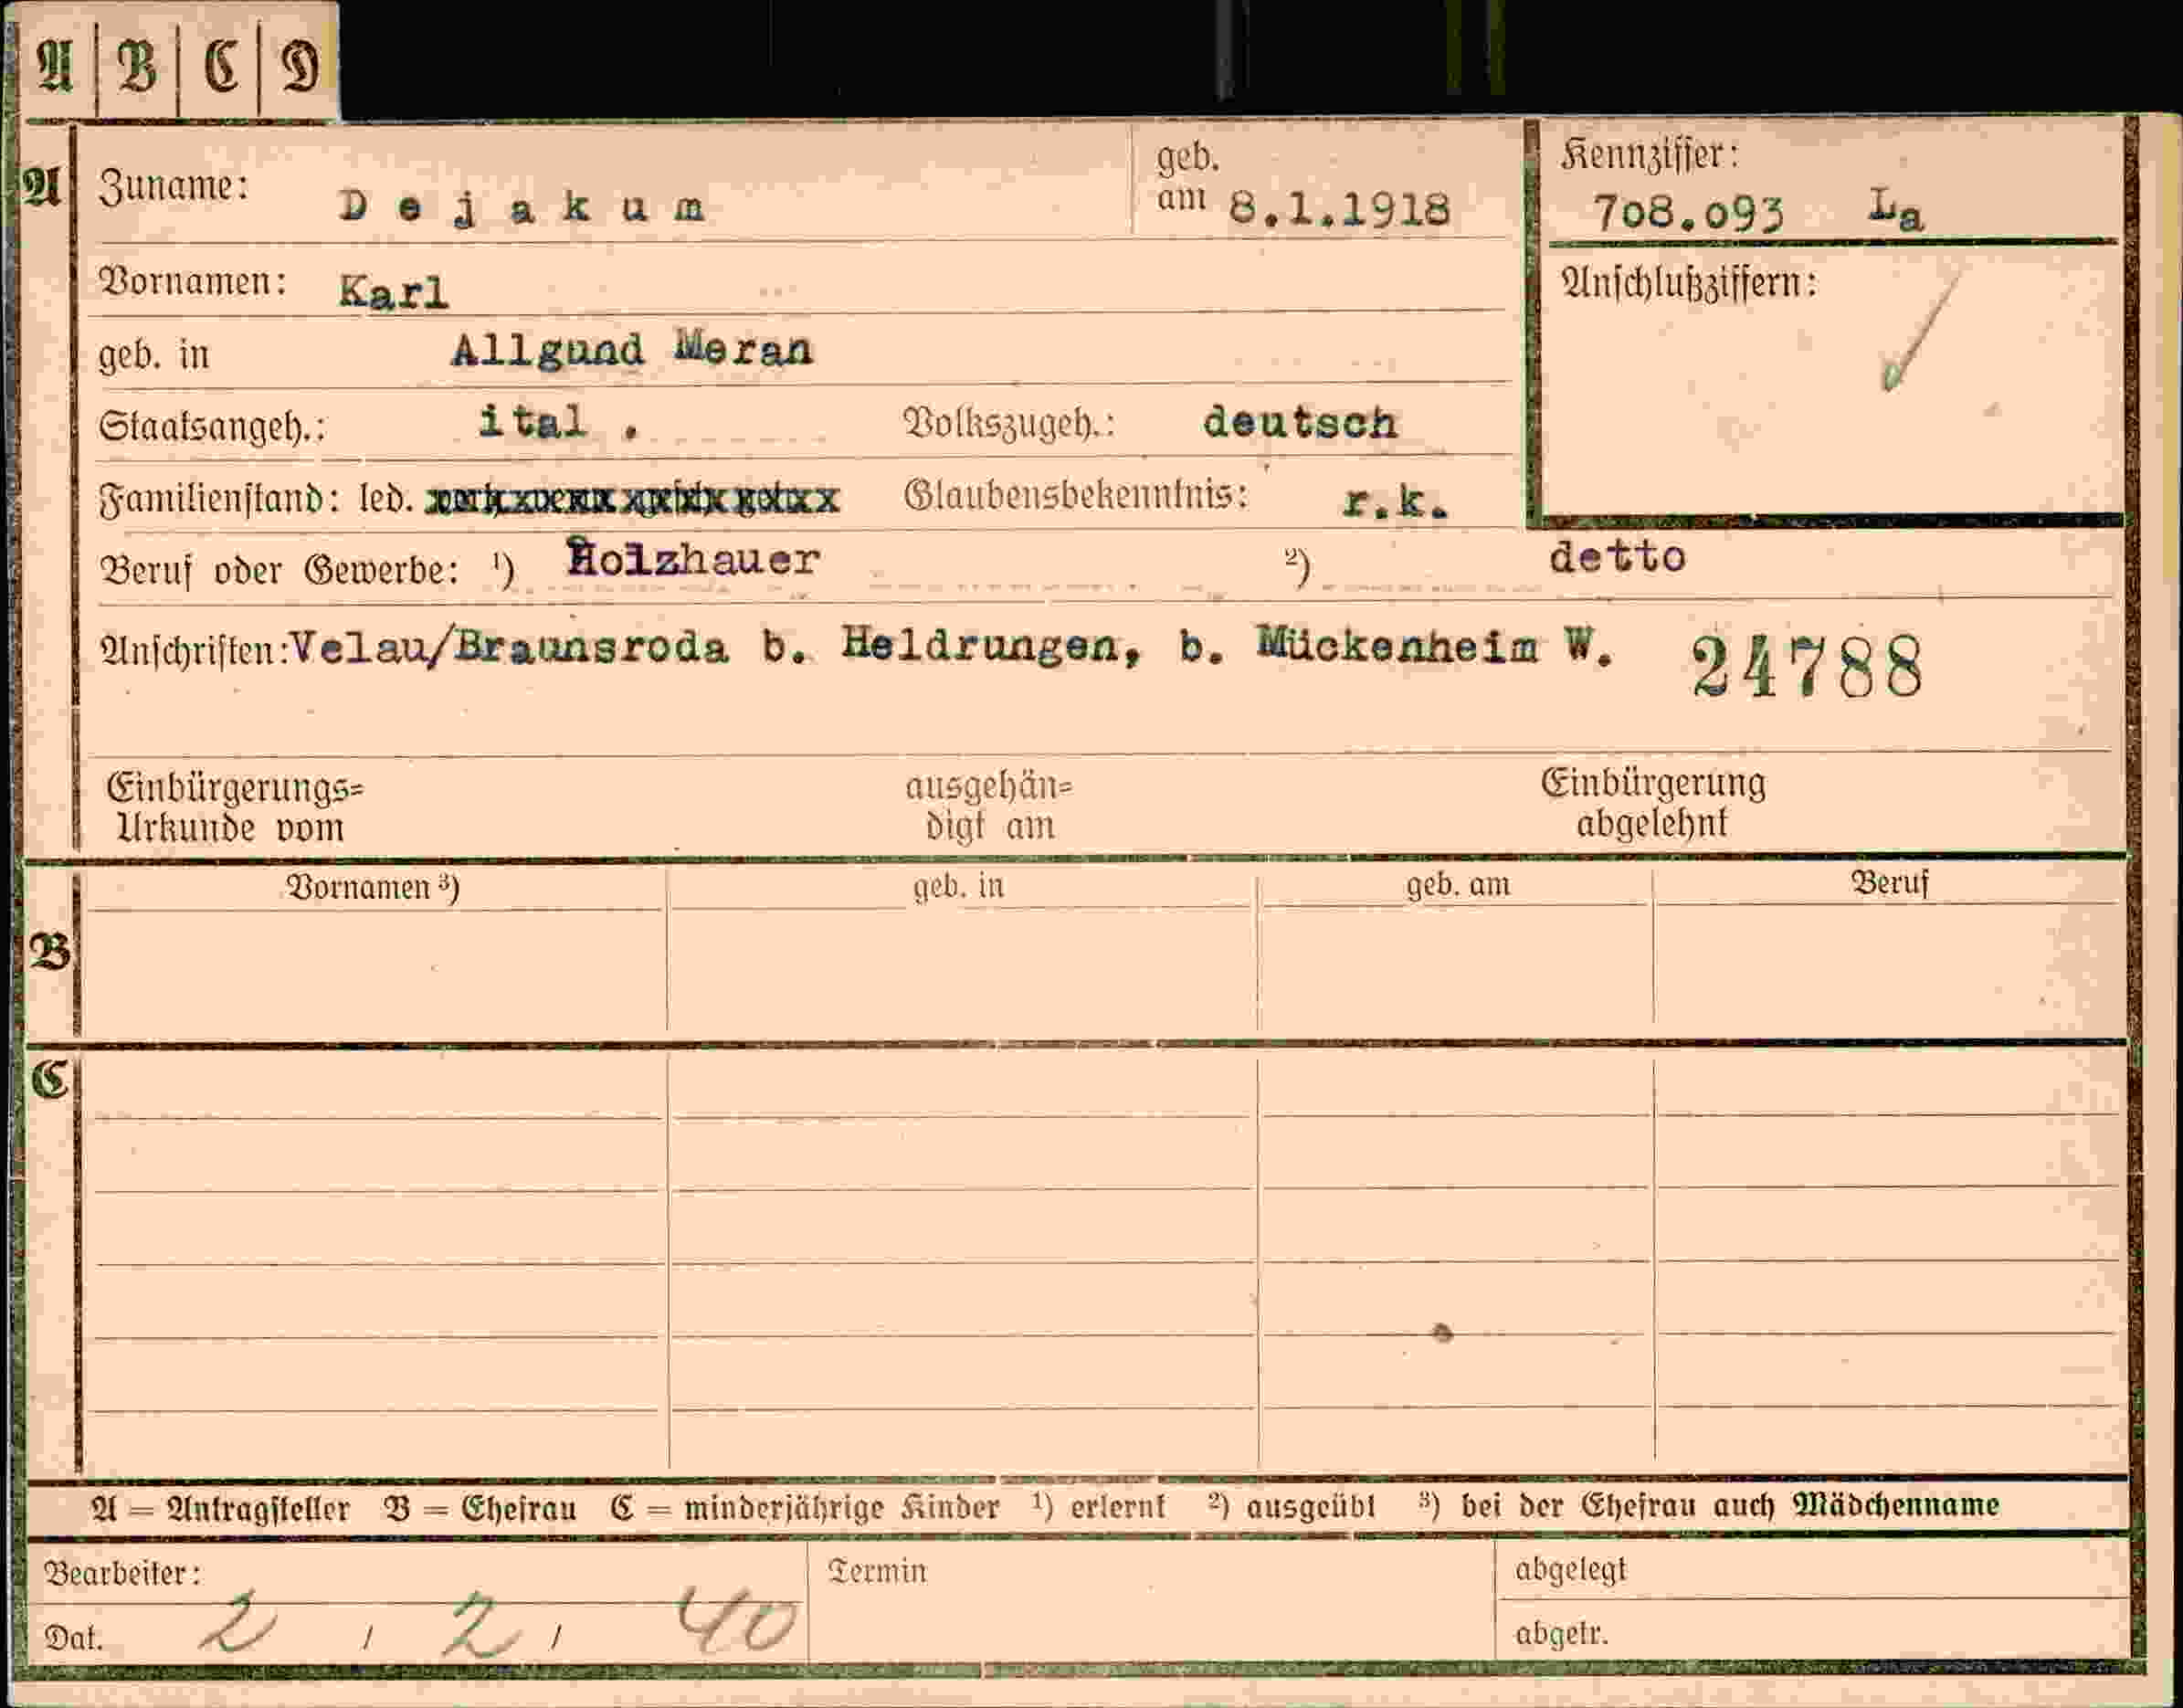 A B C D
A Zuname: Dejakum geb. am 8.1.1918 Kennziffer: 708.093 La
Vornamen: Karl Anschlußziffern:
geb. in Allgund Meran
Staatsangeh.: ital . Volkszugeh.: deutsch
Familienstand: led. Glaubensbekenntnis: r.k.
Beruf oder Gewerbe: ¹) Holzhauer ²) detto
Anschriften: Velau/Braunsroda b. Heldrungen, b. Mückenheim W. 24788
Einbürgerungs= ausgehän= Einbürgerung
Urkunde vom digt am abgelehnt
Vornamen ³) geb. in geb. am Beruf
B
C
A = Antragsteller B = Ehefrau C = minderjährige Kinder ¹) erlernt ²) ausgeübt ³) bei der Ehefrau auch Mädchenname
Bearbeiter: Termin abgelegt
Dat. 2 / 2 / 40 abgetr.